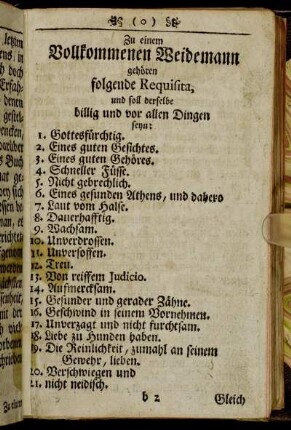 (0)
Zu einem
Vollkommenen Weidemann
gehören
folgende Requisita,
und soll derselbe
billig und vor allen Dingen
seyn:
1. Gottesfürchtig.
2. Eines guten Gesichtes.
3. Eines guten Gehöres.
4. Schneller Füsse.
5. Nicht gebrechlich.
6. Eines gesunden Athens, und dahero
7. Laut vom Halse.
8. Dauerhafftig.
9. Wachsam.
10. Unverdrossen.
11. Unversoffen.
12. Treu.
13. Von reiffem Judicio.
14. Aufmercksam.
15. Gesunder und gerader Zähne.
16. Geschwind in seinem Vornehmen.
17. Unverzagt und nicht furchtsam.
18. Liebe zu Hunden haben.
19. Die Reinlichkeit, zumahl an seinem
Gewehr, lieben.
20. Verschwiegen und
21. nicht neidisch.
b 2 Gleich